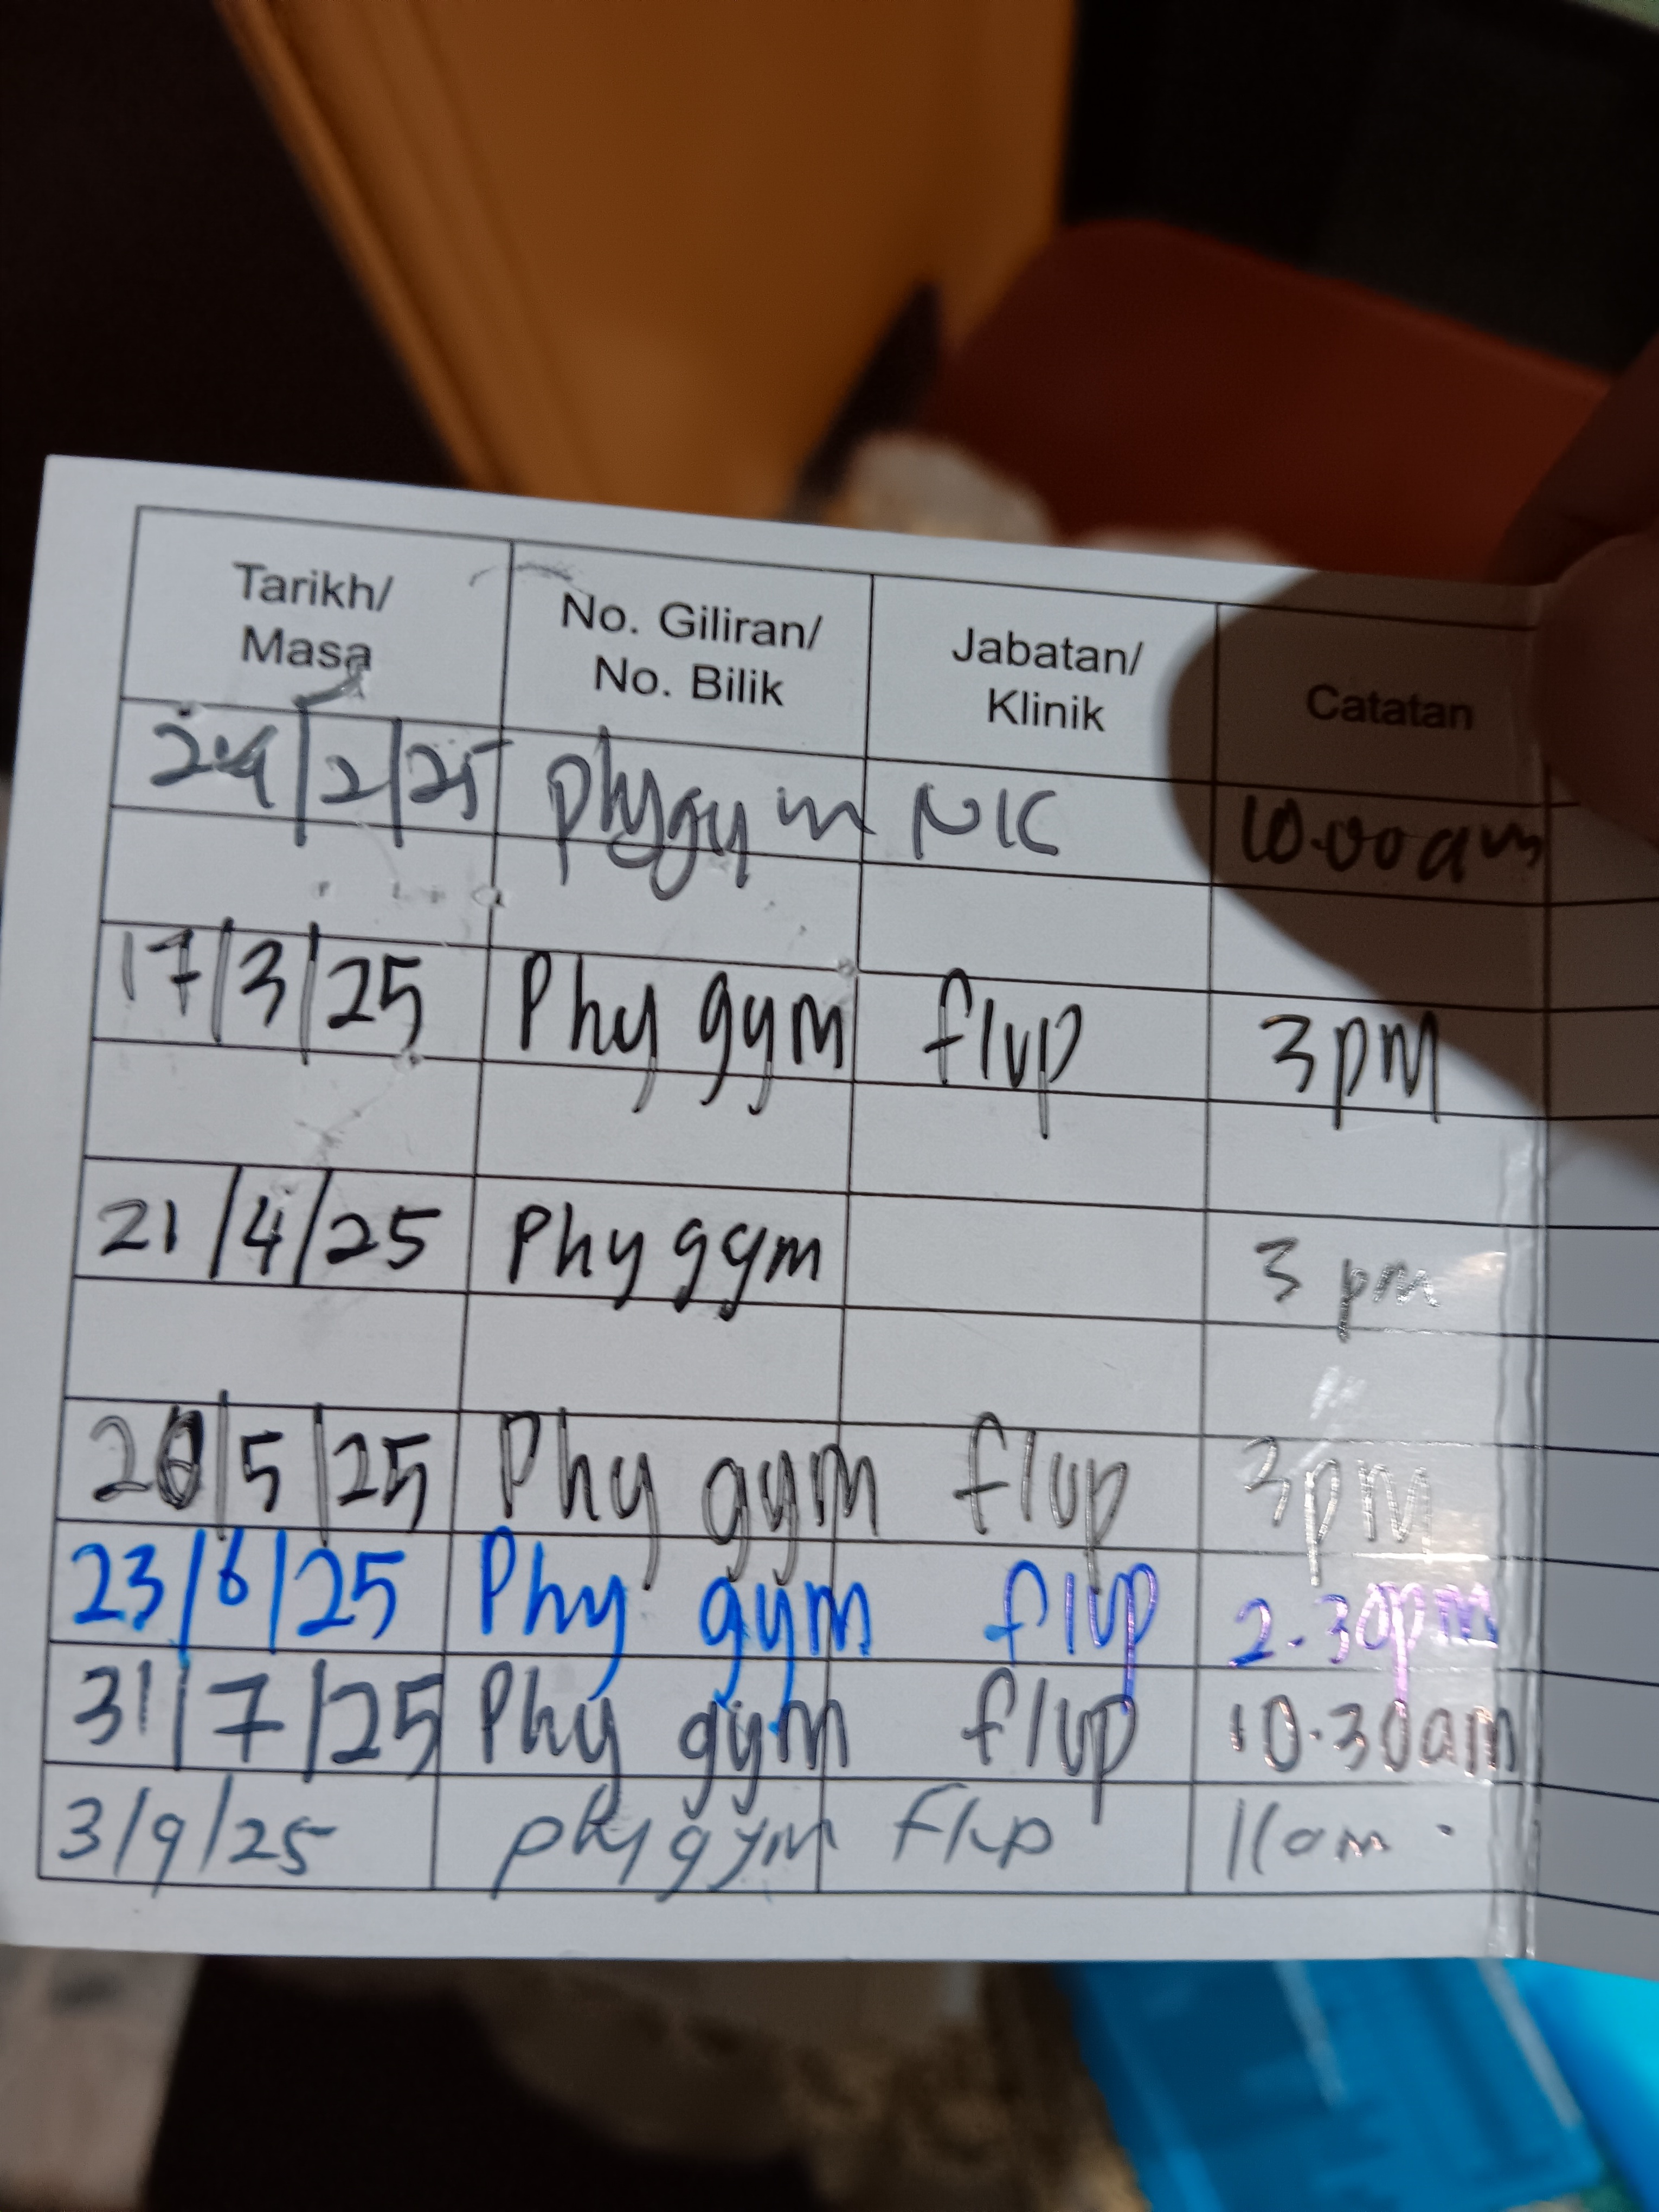 Tarikh/ Masa No. Giliran/ No. Bilik Jabatan/ Klinik Catatan
24/2/25 phygym NIC 10.00am
17/3/25 Phy gym flup 3pm
21/4/25 Phy gym 3 pm
20/5/25 Phy gym flup 3pm
23/6/25 Phy gym flup 2.30pm
31/7/25 Phy gym flup 10.30am
3/9/25 phygym flup 11am